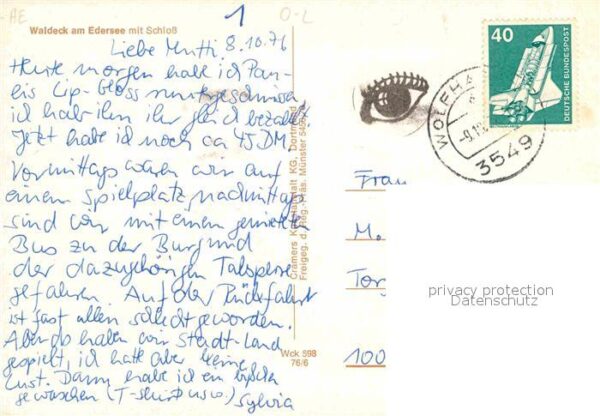 AE
1
O-L
Waldeck am Edersee mit Schloß
Liebe Mutti 8.10.76
Heute morgen habe ich Pau-
lis Lip-Gloss runtergeschmissen
ich hab ihn ihr gleich bezahlt.
Jetzt habe ich noch ca 45 DM.
Vormittags waren wir auf
einem Spielplatz, nachmittags
sind wir mit einem gemieteten
Bus zu der Burg und
der dazugehörigen Talsperre
gefahren. Auf der Rückfahrt
ist fast allen schlecht geworden.
Abends haben wir Stadt-Land
gespielt, ich hatte aber keine
Lust. Dann habe ich ein bißchen
gewaschen (T-shirt usw.) Sylvia
Cramers Kunstanstalt KG, Dortmund
Freigeg. d. Reg.-Präs. Münster
Wck 598
76/6
40
DEUTSCHE BUNDESPOST
WOLFHA
3549
Frau
M.
Tor
100
privacy protection
Datenschutz